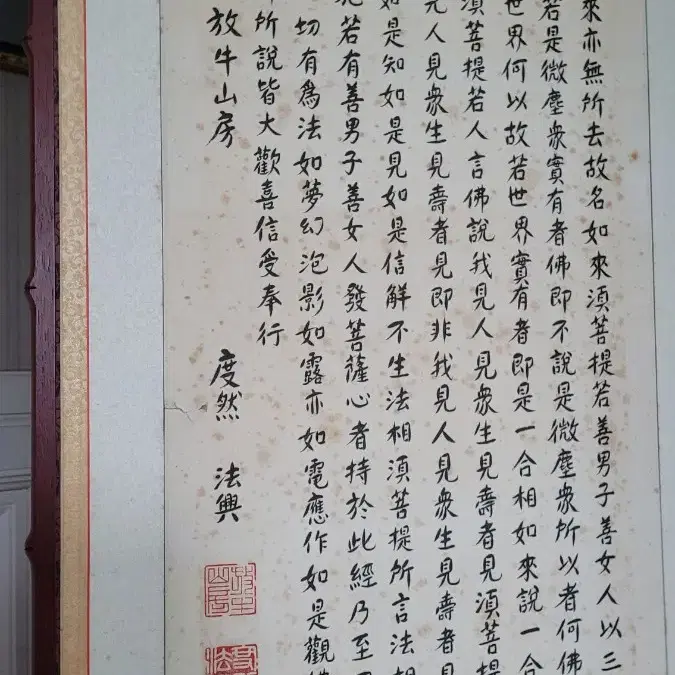 來亦無所去故名如來湏菩提若善男子善女人以三
若是微塵衆實有者佛即不說是微塵衆所以者何佛
世界何以故若世界實有者即是一合相如來說一合
湏菩提若人言佛說我見人見衆生見壽者見湏菩提
見人見衆生見壽者見即非我見人見衆生見壽者見
如是知如是見如是信解不生法相湏菩提所言法相
若有善男子善女人發菩薩心者持於此經乃至
切有爲法如夢幻泡影如露亦如電應作如是觀
所說皆大歡喜信受奉行
放牛山房 度然 法興